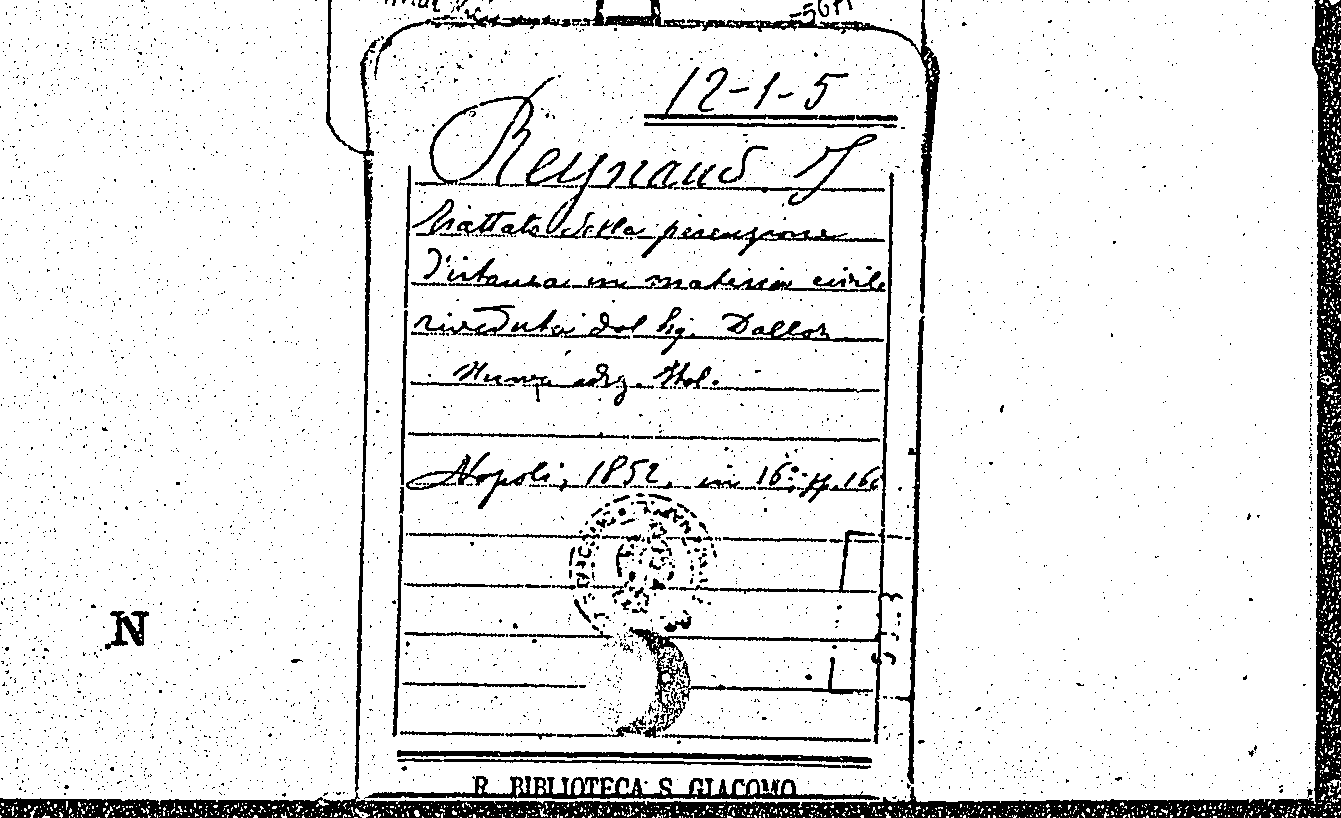 12-1-5
Reynaud J
Trattato della perenzione
d'istanza in materia civile
riveduta dal Sig. Dalloz
Nuova ediz. Ital.
Napoli, 1852, in 16°; pp. 16
N
R. BIBLIOTECA S. GIACOMO